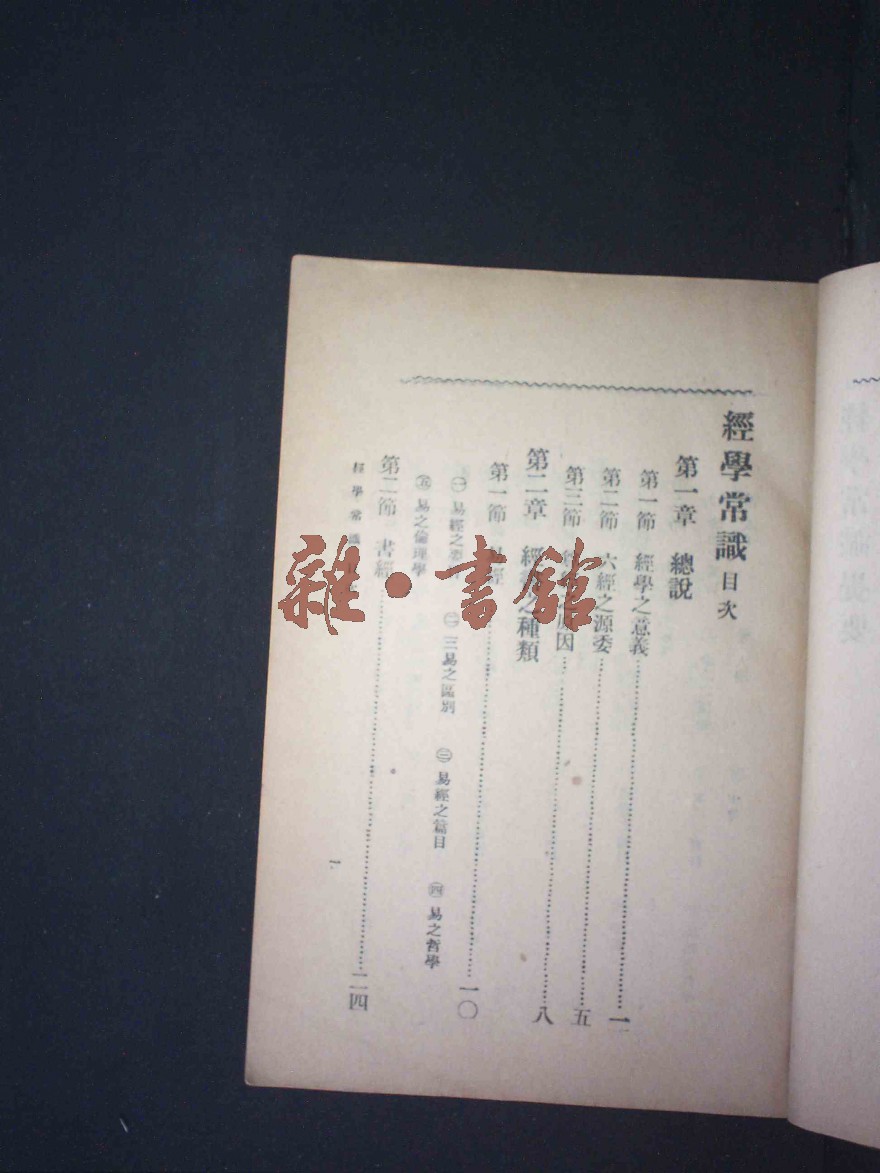 經學常識目次
第一章 總說
第一節 經學之意義……一
第二節 六經之源委……五
第三節 因……八
第二章 經 之種類
第一節 經……一〇
㊀ 易經之 ㊁ 三易之區別 ㊂ 易經之篇目 ㊃ 易之哲學
㊄ 易之倫理學
第二節 書經……二四
經學常識
一
雜·書館